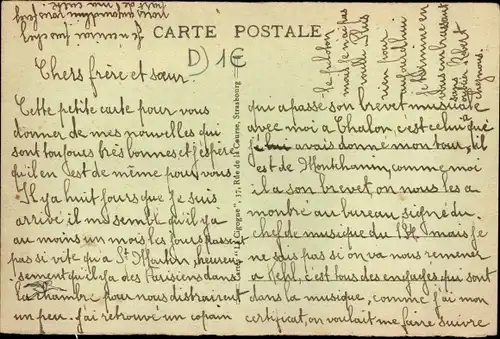 CARTE POSTALE
D) 1€
Chers frère et sœur.
Cette petite carte pour vous
donner de mes nouvelles qui
sont toujours très bonnes et j'espère
qu'il en est de même pour vous.
Il y a huit jours que je suis
arrivé il me semble qu'il y a
au moins un mois les jours passent
pas si vite qu'a St Martin, heureu
sement qu'il y a des Parisiens dans
la chambre pour nous distraire
un peu. j'ai retrouvé un copain
"Cigogne", 37, Rée de la Course, Strasbourg
qui a passé son brevet musique
avec moi a Chalon, c'est celui qu
avais donner mon tour, il
est de Montchanin, comme moi
il a son brevet, on nous les a
montré au bureau, signé du
chef de musique du mais je
ne sais pas si on va nous ramener
a Kehl, c'est tous des engagés qui sont
dans la musique, comme j'ai mon
certificat, on voulait me faire suivre
le peloton
mais je n'ai pas
voulu. Plus
rien pour
aujourd'hui
je termine en
vous embrassant